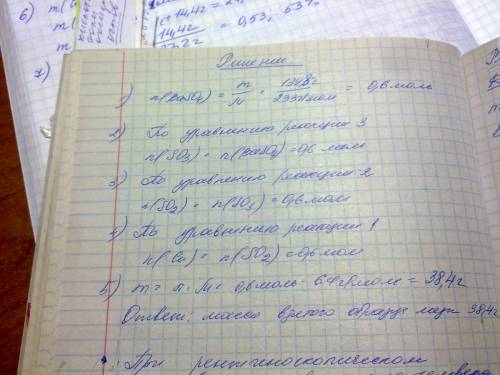 6) m(
Решение
1) n(BaSO₄) = m/M = 139,8г/233г/моль = 0,6 моль
2) По уравнению реакции 3
n(SO₃) = n(BaSO₄) = 0,6 моль
3) По уравнению реакции 2
n(SO₂) = n(SO₃) = 0,6 моль
4) По уравнению реакции 1
n(Cu) = n(SO₂) = 0,6 моль
5) m = n · M = 0,6 моль · 64г/моль = 38,4г
Ответ: масса взятого образца меди 38,4г
При рентгеноскопическом